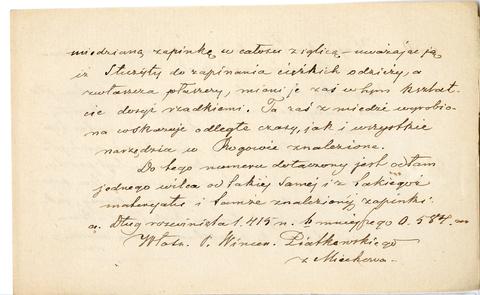 miedzianą zapinkę w całości z iglicą – uważając ją
iż służyły do zapinania ciężkich odzieży, a
zwłaszcza płaszczy, mieni je zaś w tym kształ-
cie dosyć rzadkiemi. Ta zaś z miedzi wyrobio-
na wskazuje odległe czasy, jak i wszystkie
narzędzia w Rogowie znalezione.
Do tego numeru dołączony jest odłam
jednego wilca od takiej samej i z takiegoż
materyału i tamże znalezionej zapinki.
a. Dług rozwinięta 1. 415 n. b mniejszego 0. 584
Włas. P. Wincen. Piatkowskiego
z Miechowa –